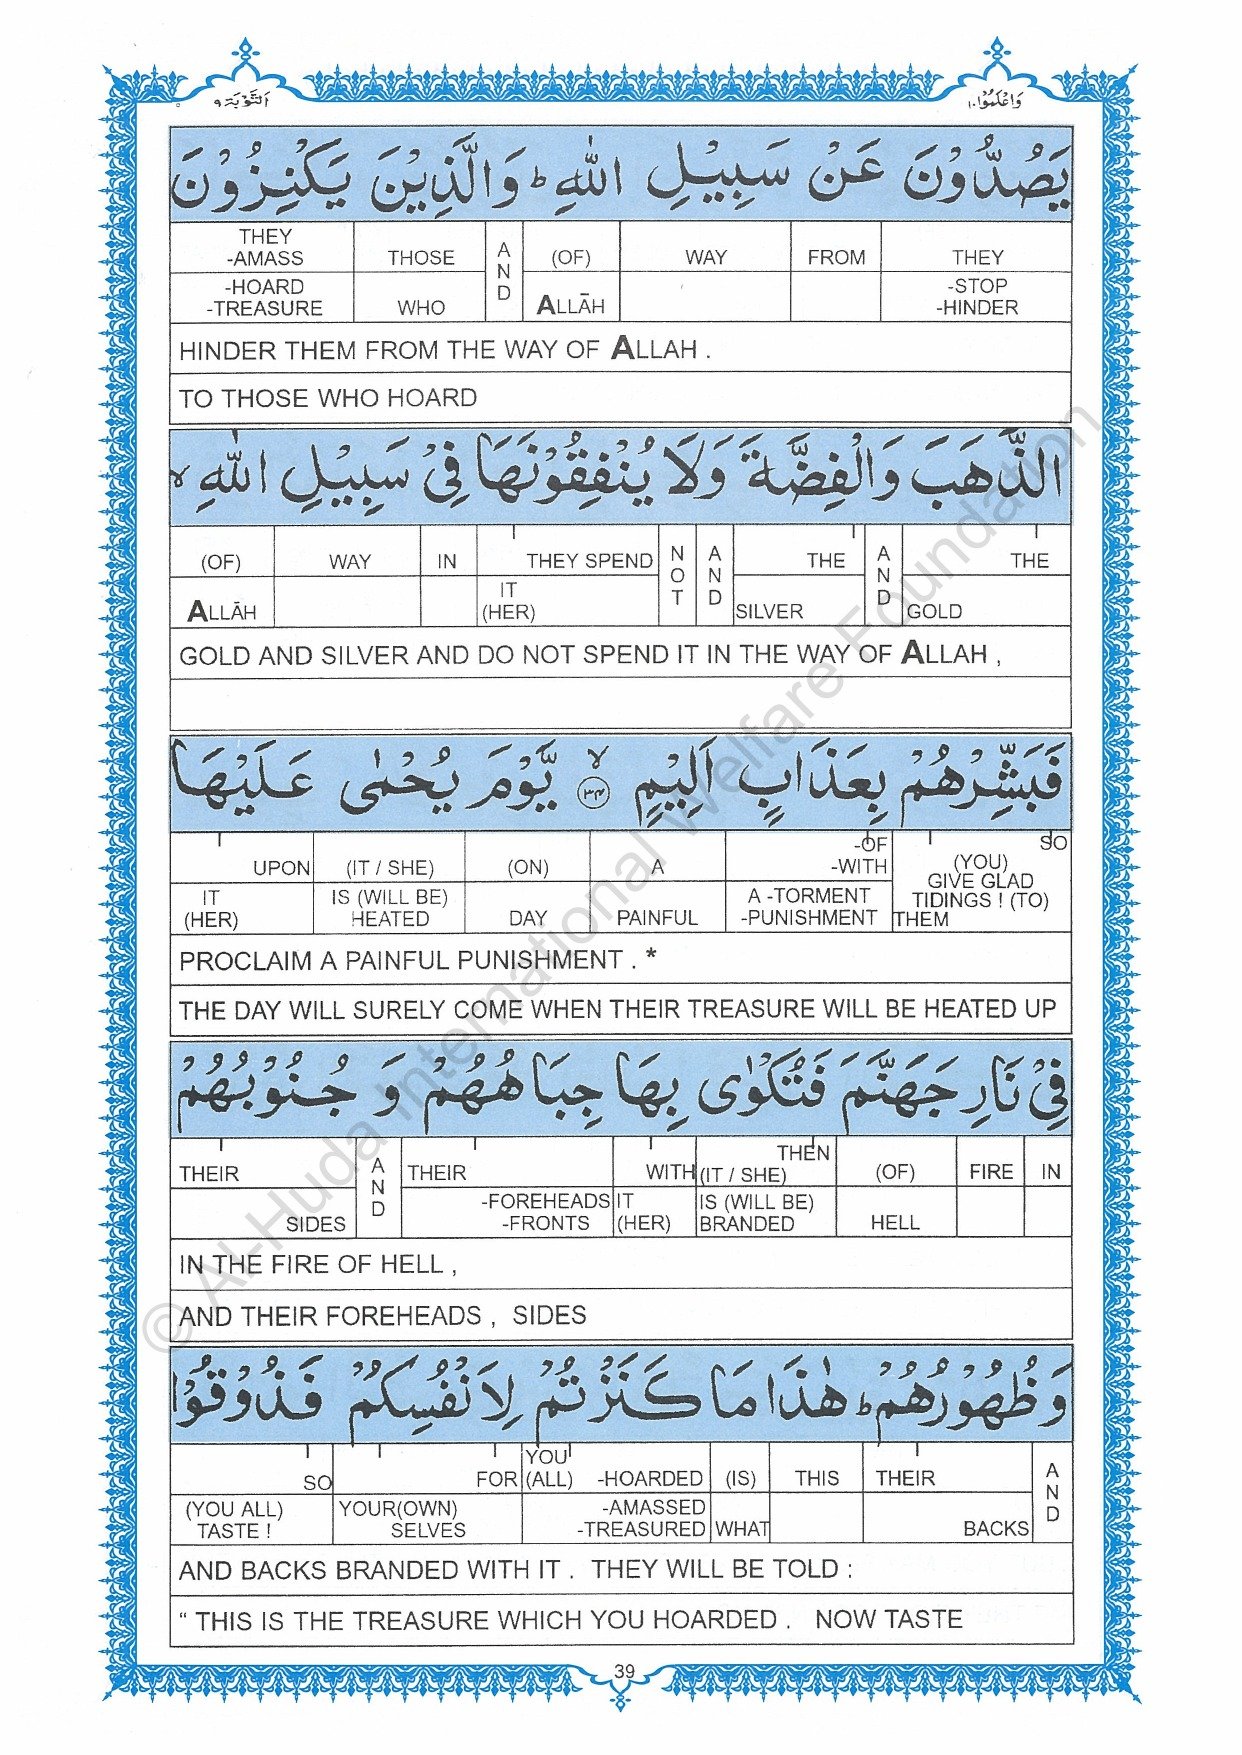 وَاعْلَمُوْٓا ١٠
اَلتَّوْبَة ٩
يَصُدُّوْنَ عَنْ سَبِيْلِ اللّٰهِ ؕ وَالَّذِيْنَ يَكْنِزُوْنَ
THEY -STOP -HINDER
FROM
WAY
(OF) ALLĀH
AND
THOSE WHO
THEY -AMASS -HOARD -TREASURE
HINDER THEM FROM THE WAY OF ALLAH .
TO THOSE WHO HOARD
الذَّهَبَ وَالْفِضَّةَ وَلَا يُنْفِقُوْنَهَا فِيْ سَبِيْلِ اللّٰهِ ۙ
THE GOLD
AND
THE SILVER
AND
NOT
THEY SPEND IT (HER)
IN
WAY
(OF) ALLĀH
GOLD AND SILVER AND DO NOT SPEND IT IN THE WAY OF ALLAH ,
فَبَشِّرْهُمْ بِعَذَابٍ اَلِيْمٍ ۙ ٣٤ يَّوْمَ يُحْمٰى عَلَيْهَا
SO (YOU) GIVE GLAD TIDINGS ! (TO) THEM
-OF -WITH A -TORMENT -PUNISHMENT
A PAINFUL
(ON) DAY
(IT / SHE) IS (WILL BE) HEATED
UPON IT (HER)
PROCLAIM A PAINFUL PUNISHMENT . *
THE DAY WILL SURELY COME WHEN THEIR TREASURE WILL BE HEATED UP
فِيْ نَارِ جَهَنَّمَ فَتُكْوٰى بِهَا جِبَاهُهُمْ وَ جُنُوْبُهُمْ
IN
FIRE
(OF) HELL
THEN (IT / SHE) IS (WILL BE) BRANDED
WITH IT (HER)
THEIR -FOREHEADS -FRONTS
AND
THEIR SIDES
IN THE FIRE OF HELL ,
AND THEIR FOREHEADS , SIDES
وَظُهُوْرُهُمْ ؕ هٰذَا مَا كَنَزْتُمْ لِاَنْفُسِكُمْ فَذُوْقُوْا
AND
THEIR BACKS
THIS
(IS) WHAT
YOU (ALL) -HOARDED -AMASSED -TREASURED
FOR YOUR(OWN) SELVES
SO (YOU ALL) TASTE !
AND BACKS BRANDED WITH IT . THEY WILL BE TOLD :
“ THIS IS THE TREASURE WHICH YOU HOARDED . NOW TASTE
39
© Al-Huda International Welfare Foundation